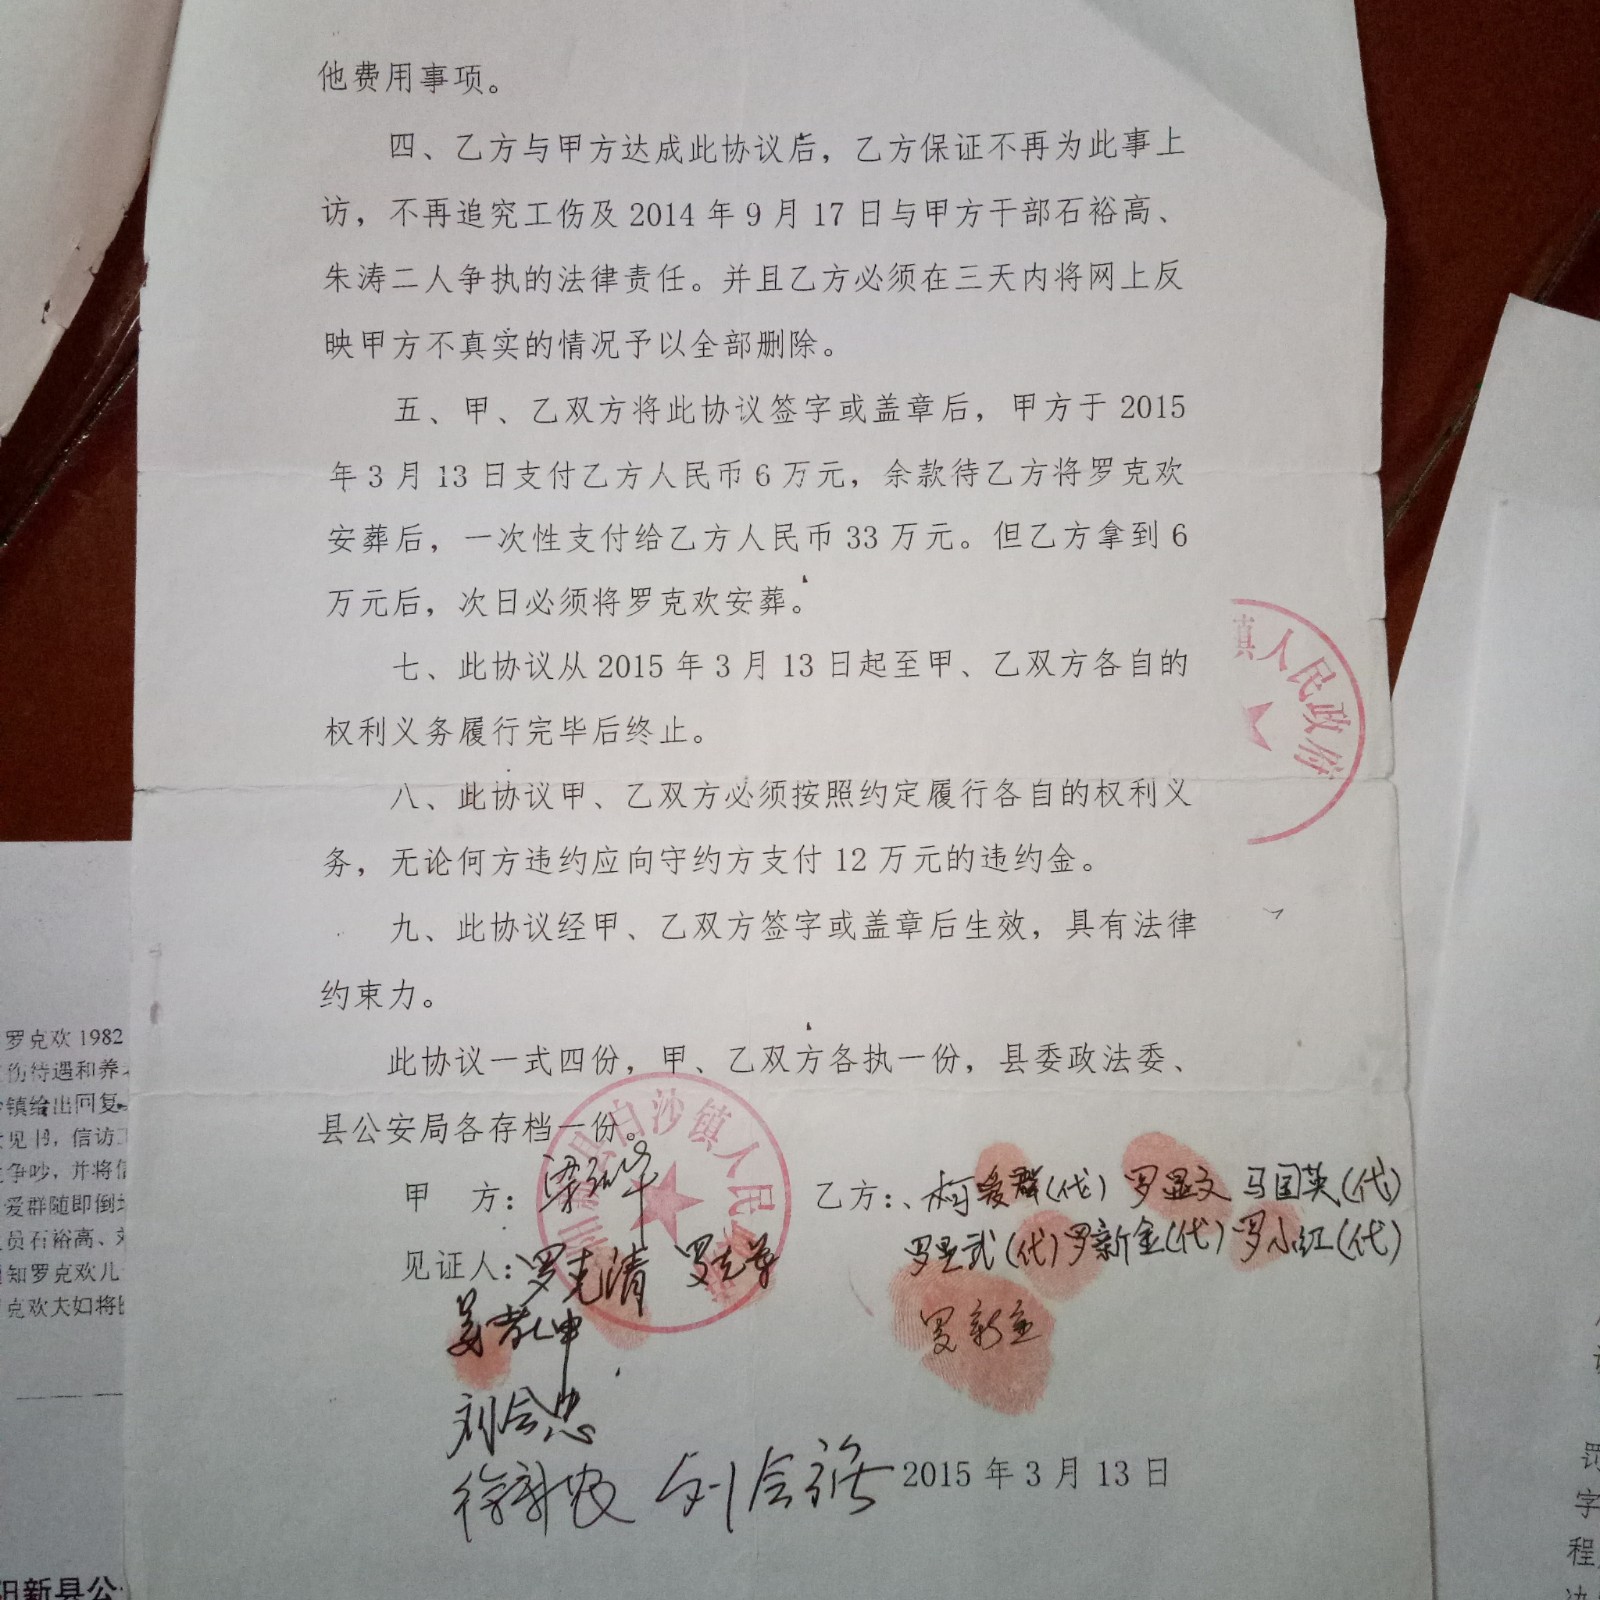 他费用事项。
四、乙方与甲方达成此协议后，乙方保证不再为此事上
访，不再追究工伤及 2014 年 9 月 17 日与甲方干部石裕高、
朱涛二人争执的法律责任。并且乙方必须在三天内将网上反
映甲方不真实的情况予以全部删除。
五、甲、乙双方将此协议签字或盖章后，甲方于 2015
年 3 月 13 日支付乙方人民币 6 万元，余款待乙方将罗克欢
安葬后，一次性支付给乙方人民币 33 万元。但乙方拿到 6
万元后，次日必须将罗克欢安葬。
七、此协议从 2015 年 3 月 13 日起至甲、乙双方各自的
权利义务履行完毕后终止。
八、此协议甲、乙双方必须按照约定履行各自的权利义
务，无论何方违约应向守约方支付 12 万元的违约金。
九、此协议经甲、乙双方签字或盖章后生效，具有法律
约束力。
此协议一式四份，甲、乙双方各执一份，县委政法委、
县公安局各存档一份。
甲 方：
乙方：、柯爱群(代) 罗显文 马国英(代)
见证人：罗克清
罗显武(代) 罗新金(代) 罗小红(代)
刘会忠
2015 年 3 月 13 日
镇人民政府
县白沙镇人民
罗克欢 1982
伤待遇和养
镇给出回复
见书，信访
争吵，并将信
爱群随即倒
员石裕高、
知罗克欢儿
克欢夫妇将
阳新县公
罚
字
程